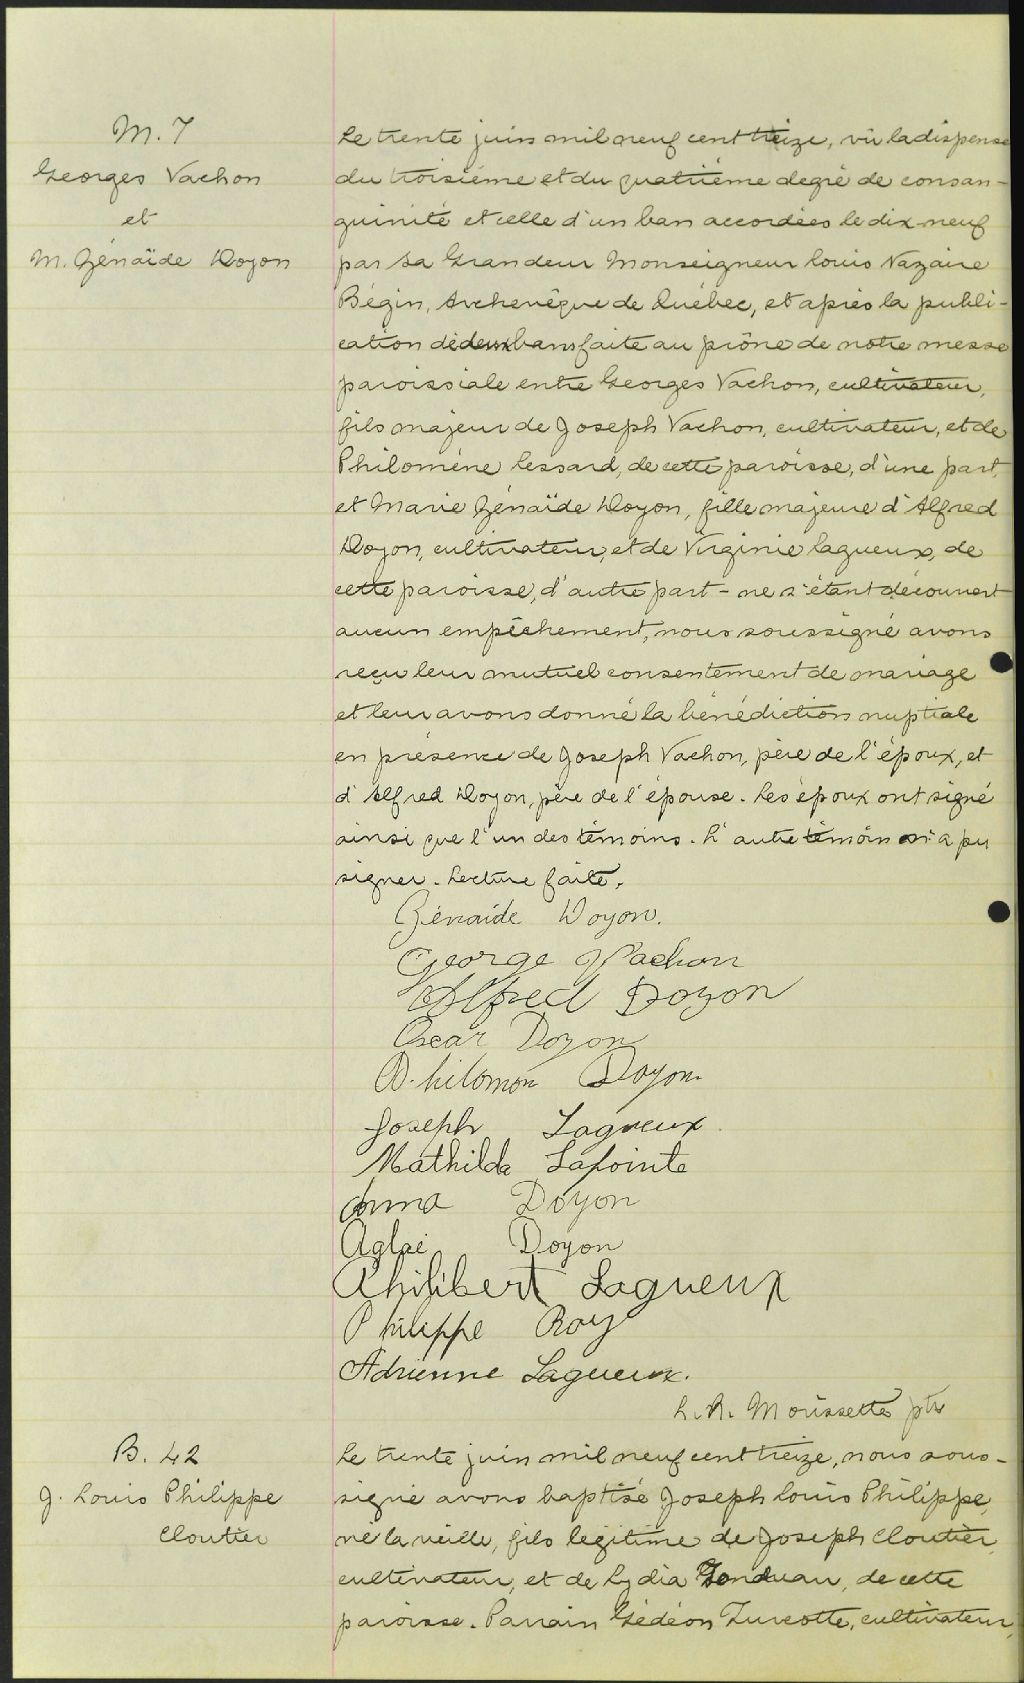 M. 7
Georges Vachon
et
M. Zénaïde Doyon
Le trente juin mil neuf cent treize, vu la dispense
du troisième et du quatrième degré de consan-
guinité et celle d'un ban accordées le dix-neuf
par Sa Grandeur Monseigneur Louis Nazaire
Bégin, Archevêque de Québec, et après la publi-
cation de deux bans faite au prône de notre messe
paroissiale entre Georges Vachon, cultivateur,
fils majeur de Joseph Vachon, cultivateur, et de
Philomène Lessard, de cette paroisse, d'une part,
et Marie Zénaïde Doyon, fille majeure d'Alfred
Doyon, cultivateur, et de Virginie Lagueux, de
cette paroisse, d'autre part - ne s'étant découvert
aucun empêchement, nous soussigné avons
reçu leur mutuel consentement de mariage
et leur avons donné la bénédiction nuptiale
en présence de Joseph Vachon, père de l'époux, et
d'Alfred Doyon, père de l'épouse. Les époux ont signé
ainsi que l'un des témoins. L'autre témoin n'a pu
signer. Lecture faite.
Zénaide Doyon.
George Vachon
Alfred Doyon
Oscar Doyon
Philomon Doyon.
Joseph Lagueux.
Mathilda Lapointe
Anna Doyon
Aglaé Doyon
Philibert Lagueux
Philippe Roy
Adrienne Lagueux.
Morissette ptre
B. 42
J. Louis Philippe
Cloutier
Le trente juin mil neuf cent treize, nous sous-
signé avons baptisé Joseph Louis Philippe,
né la veille, fils légitime de Joseph Cloutier,
cultivateur, et de Lydia, de cette
paroisse. Parrain Gédéon Turcotte, cultivateur,